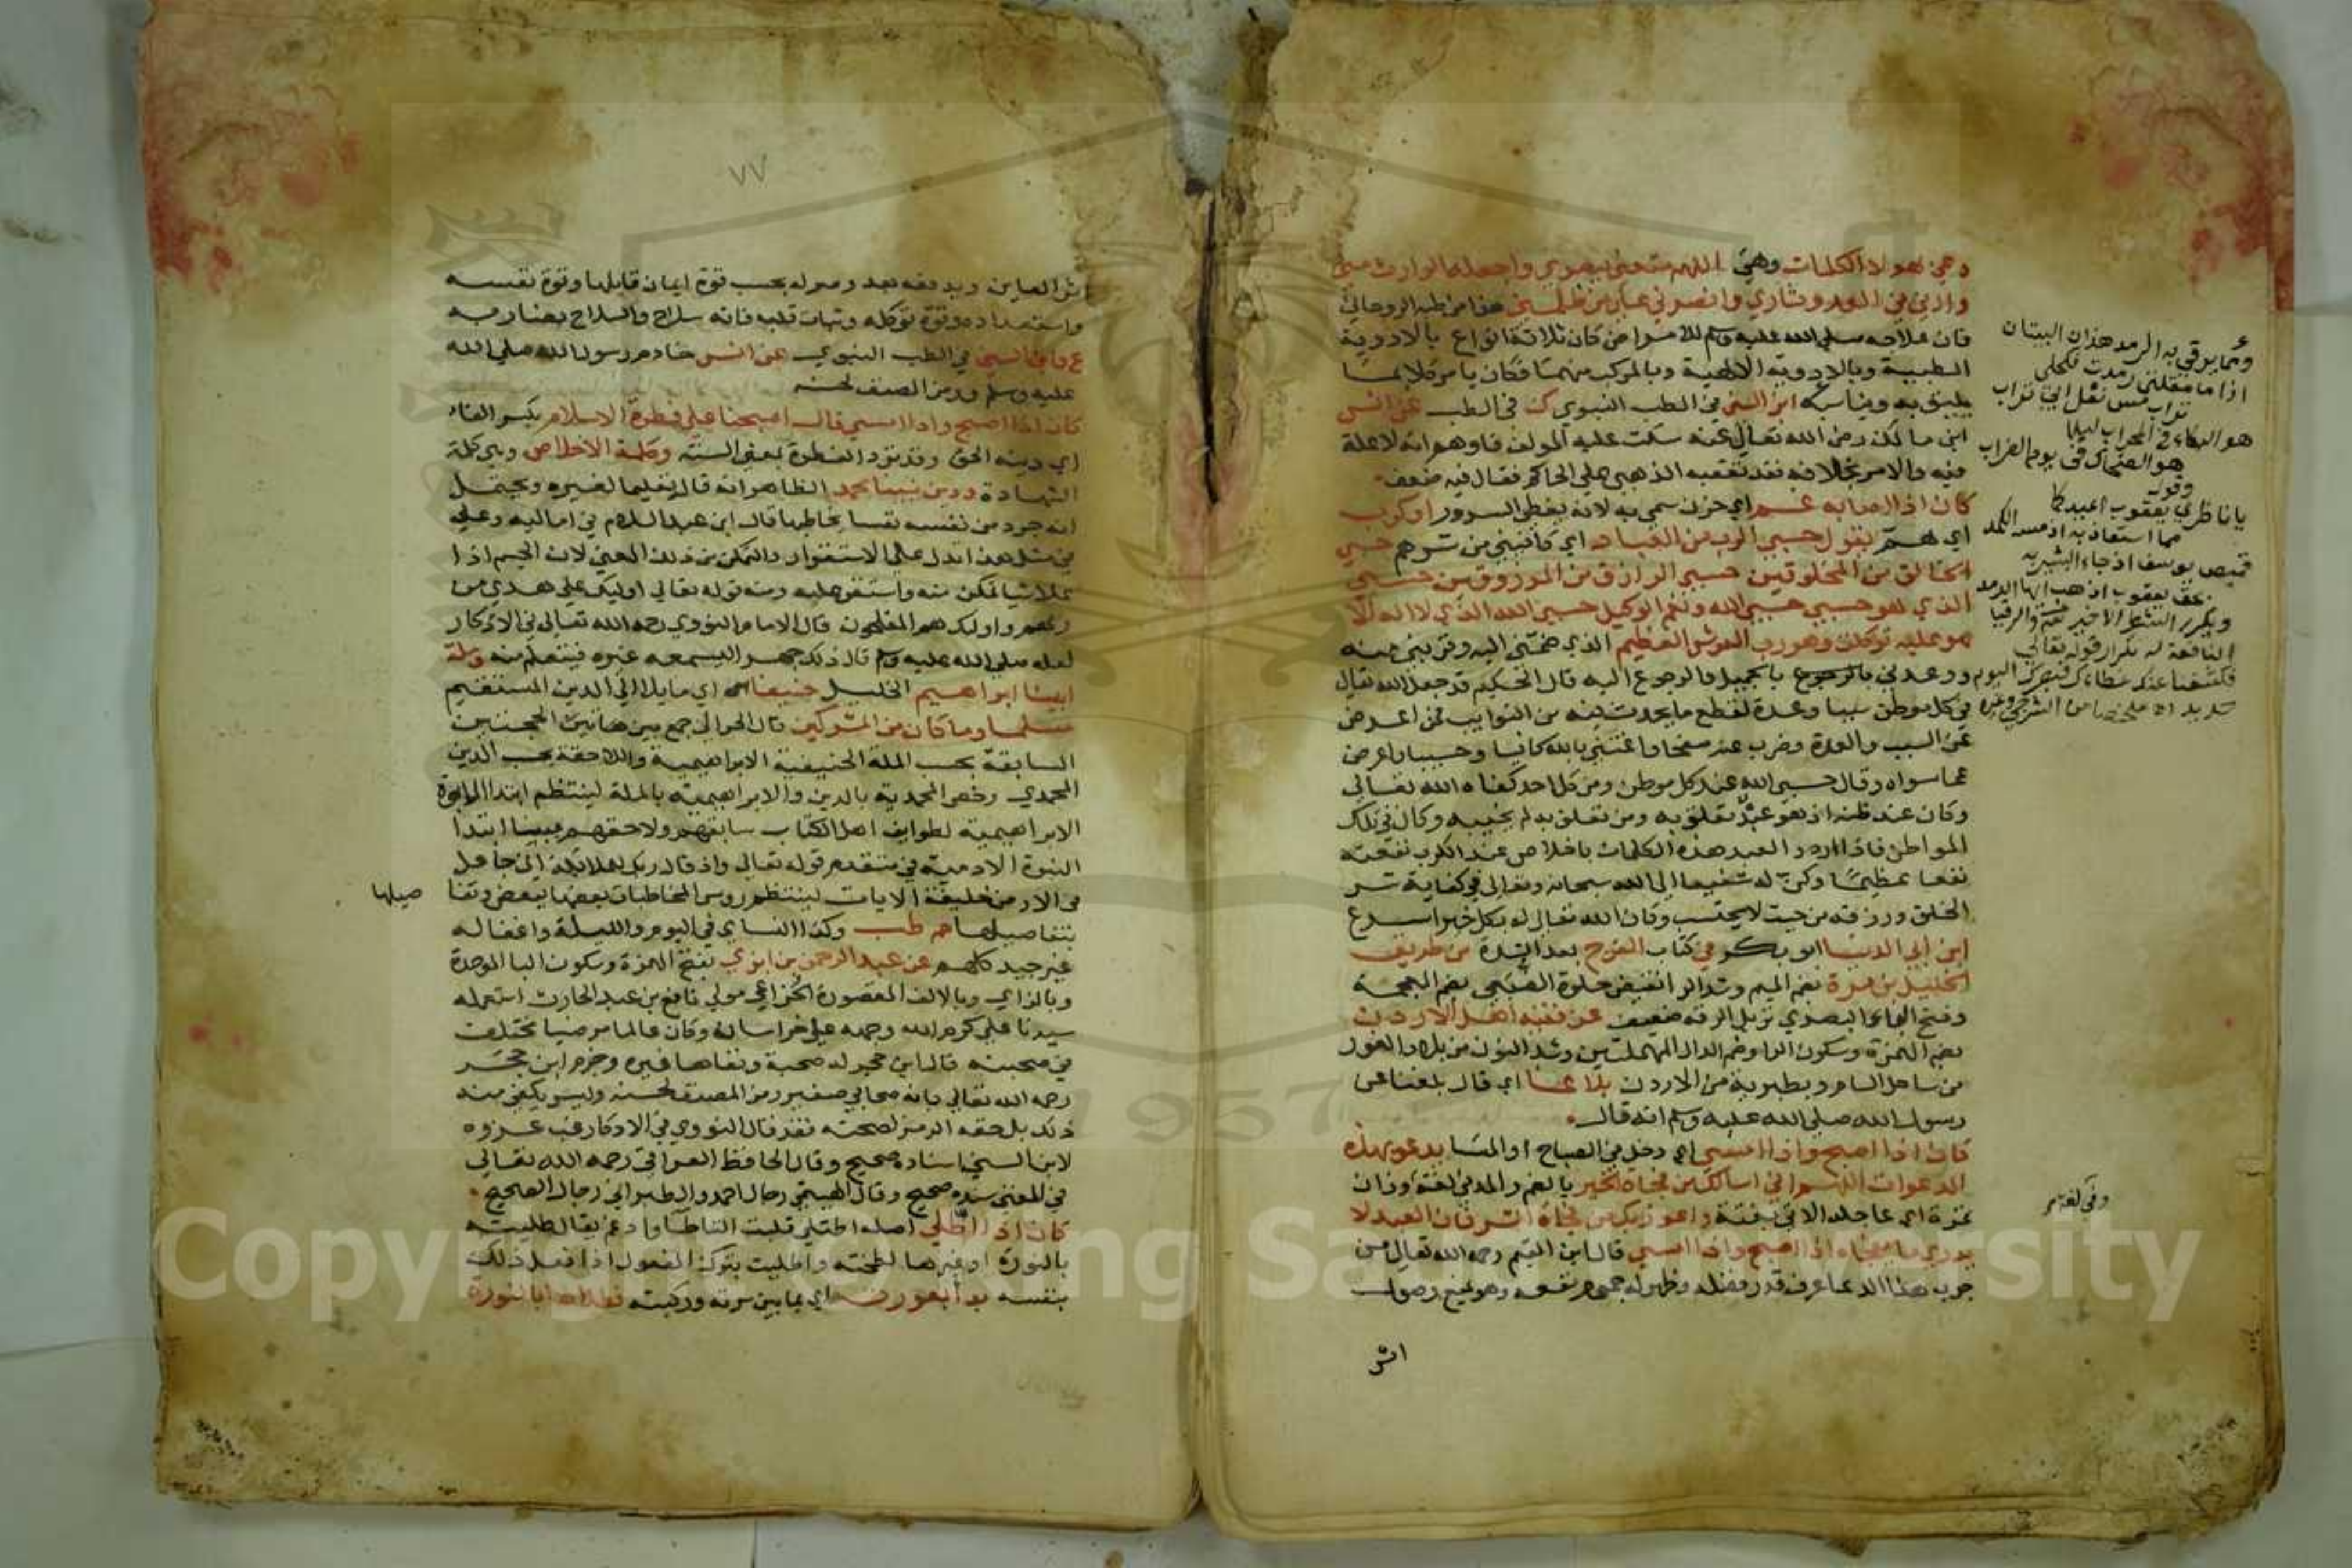 دعى بهولاء الكلمات وهي اللهم متعني ببصري واجعله الوارث مني
وارني في العدو ثاري وانصرني على من ظلمني هذا من طبه الروحاني
فان علاجه صلى الله عليه وسلم للامراض كان ثلاثة انواع بالادوية
الطبيعية وبالادوية الالهية وبالمركب منهما فكان يامر كلا بما
يليق به ويناسبه ابن السني في الطب النبوي ك في الطب عن انس
ابن مالك رضى الله تعالى عنه سكت عليه المولف فاوهم انه لا علة
فيه والامر بخلافه فقد تعقبه الذهبي على الحاكم فقال فيه ضعف
كان اذا اصابه غم اي حزن سمي به لانه يغطي السرور او كرب
اي هم يقول حسبي الرب من العباد اي كافيني من شرهم حسبي
الخالق من المخلوقين حسبي الرازق من المرزوقين حسبي
الذي هو حسبي حسبي الله ونعم الوكيل حسبي الله الذي لا اله الا
هو عليه توكلت وهو رب العرش العظيم الذي ضمني اليه وقربني منه
ووعدني بالجميل والرجوع اليه قال الحكيم قد جعل الله تعالى
في كل موطن سببا وعدة لقطع ما يحدث فيه من النوايب فمن اعرض
عن السبب والعدة وضرب عنه صفحا واغتنى بالله كافيا وحسيبا واعرض
عما سواه وقال حسبي الله عند كل موطن ومن كل احد كفاه الله تعالى
وكان عند ظنه اذ هو عبد تعلق به ومن تعلق به لم يخيبه وكان في تلك
المواطن فاذا اردد العبد هذه الكلمات باخلاص عند الكرب نفعته
نفعا عظيما وكن له شفيعا الى الله سبحانه وتعالى في كفاية شر
الخلق ورزقه من حيث لا يحتسب وكان الله تعالى له بكل خير اسرع
ابن ابي الدنيا ابو بكر في كتاب الفرج بعد الشدة من طريق
الخليل بن مرة بضم الميم وشد الرا نقيض حلوة الضبعي بضم المعجمة
وفتح الباء البصري نزيل الرقة ضعيف عن فقيه اهل الاردن
بضم الهمزة وسكون الرا وضم الدال المهملتين وشد النون من بلاد الغور
من ساحل الشام وطبرية من الاردن بلاغا اي قال بلغنا عن
رسول الله صلى الله عليه وسلم انه قال
كان اذا اصبح واذا امسى اي دخل في الصباح او المسا يدعو بهذه
الدعوات اللهم اني اسالك من فجاة الخير بالضم والمد وفي لغة وزان
تمرة اي عاجله الاتي بغتة واعوذ بك من فجاة الشر فان العبد لا
يدري ما يفجاه اذا اصبح واذا امسى قال ابن القيم رحمه الله تعالى من
جرب هذا الدعا عرف قدر فضله وظهر له جموم نفعه وهو يمنع وصول
اثر
ومما يرقى به الرمد هذان البيتان
اذا ما مقلتي رمدت فكحلي
تراب مس نعل ابي تراب
هو البكاء في المحراب ليلا
هو الضحاك في يوم الضراب
وقوله
يا ناظري يعقوب اعيذكما
مما استعاذ به اذ مسه الكمد
قميص يوسف اذ جاء البشير به
بحق يعقوب اذهب ايها الرمد
النافعة له تكرار قوله تعالى
فكشفنا عنك غطاءك فبصرك اليوم
حديد
٧٧
اثر العاين ويدفعه بعد وصوله بحسب قوة ايمان قايلها وقوة نفسه
واستعداده وقوة توكله وثبات قلبه فانه سلاح والسلاح بضاربه
ع وابن السني في الطب النبوي عن انس خادم رسول الله صلى الله
عليه وسلم ورمز المصنف لحسنه
كان اذا اصبح واذا امسى قال اصبحنا على فطرة الاسلام بكسر الفاء
اي دينه الحق وقد ترد الفطرة بمعنى السنة وكلمة الاخلاص وهي كلمة
الشهادة ودين نبينا محمد الظاهر انه قال تعليما لغيره ويحتمل
انه جرد من نفسه نفسا يخاطبها قال ابن عبد السلام في اماليه وعلى
في مثل هذا تدل على الاستقرار والتمكن من ذلك المعنى لان الجسم اذا
علا شيا تمكن منه واستقر عليه ومنه قوله تعالى اوليك على هدى من
ربهم واوليك هم المفلحون قال الامام النووي رحمه الله تعالى في الاذكار
لعله صلى الله عليه وسلم قال ذلك جهرا ليسمعه غيره فيتعلم منه وملة
ابينا ابراهيم الخليل حنيفا اي مايلا الى الدين المستقيم
مسلما وما كان من المشركين قال الحرالي جمع بين هاتين الحجتين
السابقة بحسب الملة الحنيفية الابراهيمية واللاحقة بحسب الدين
المحمدي وخص المحمدية بالدين والابراهيمية بالملة لينتظم ابتدا الابوة
الابراهيمية لطوايف اهل الكتاب سابقهم ولاحقهم ببينا ابتدا
النبوة الادمية في متقدم قوله تعالى واذ قال ربك للملائكة اني جاعل
في الارض خليفة الايات لينتظم روس المخاطبات بعضها ببعض وتفا
صيلها
بتفاصيلها حم طب وكذا النساي في اليوم والليلة واغفاله
غير جيد كلهم عن عبد الرحمن بن ابزي بفتح الهمزة وسكون البا الموحدة
وبالزاي وبالالف المقصورة الخزاعي مولى نافع بن عبد الحارث استعمله
سيدنا علي كرم الله وجهه على خراسان وكان عالما مرضيا مختلف
في صحبته قال ابن حجر له صحبة ونفاها غيره وجزم ابن حجر
رحمه الله تعالى بانه صحابي صغير رمز المصنف لحسنه وليس يكفي منه
ذلك بل حقه الرمز لصحته فقد قال النووي في الاذكار عقب عزوه
لابن السني اسناده صحيح وقال الحافظ العراقي رحمه الله تعالى
في المغني سنده صحيح وقال الهيتمي رجال احمد والطبراني رجال الصحيح
كان اذا اطلى اصله اطتلى قلبت التا طا وادغم يقال طليته
بالنورة او غيرها لطخته واطليت بترك المفعول اذا فعل ذلك
بنفسه بدأ بعورته اي بما بين سرته وركبته فطلاها بالنورة
1957
Copyright © King Saud University